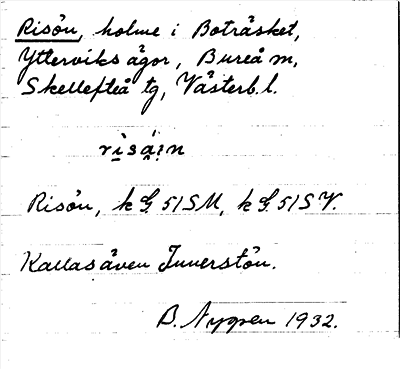 Risön, holme i Boträsket,
Ytterviks ägor, Bureå sn,
Skellefteå tg, Västerb. l.
Risön, kG. 51SU, kG. 51SV.
Kallas även Innerstön.
B. Nygren 1932.